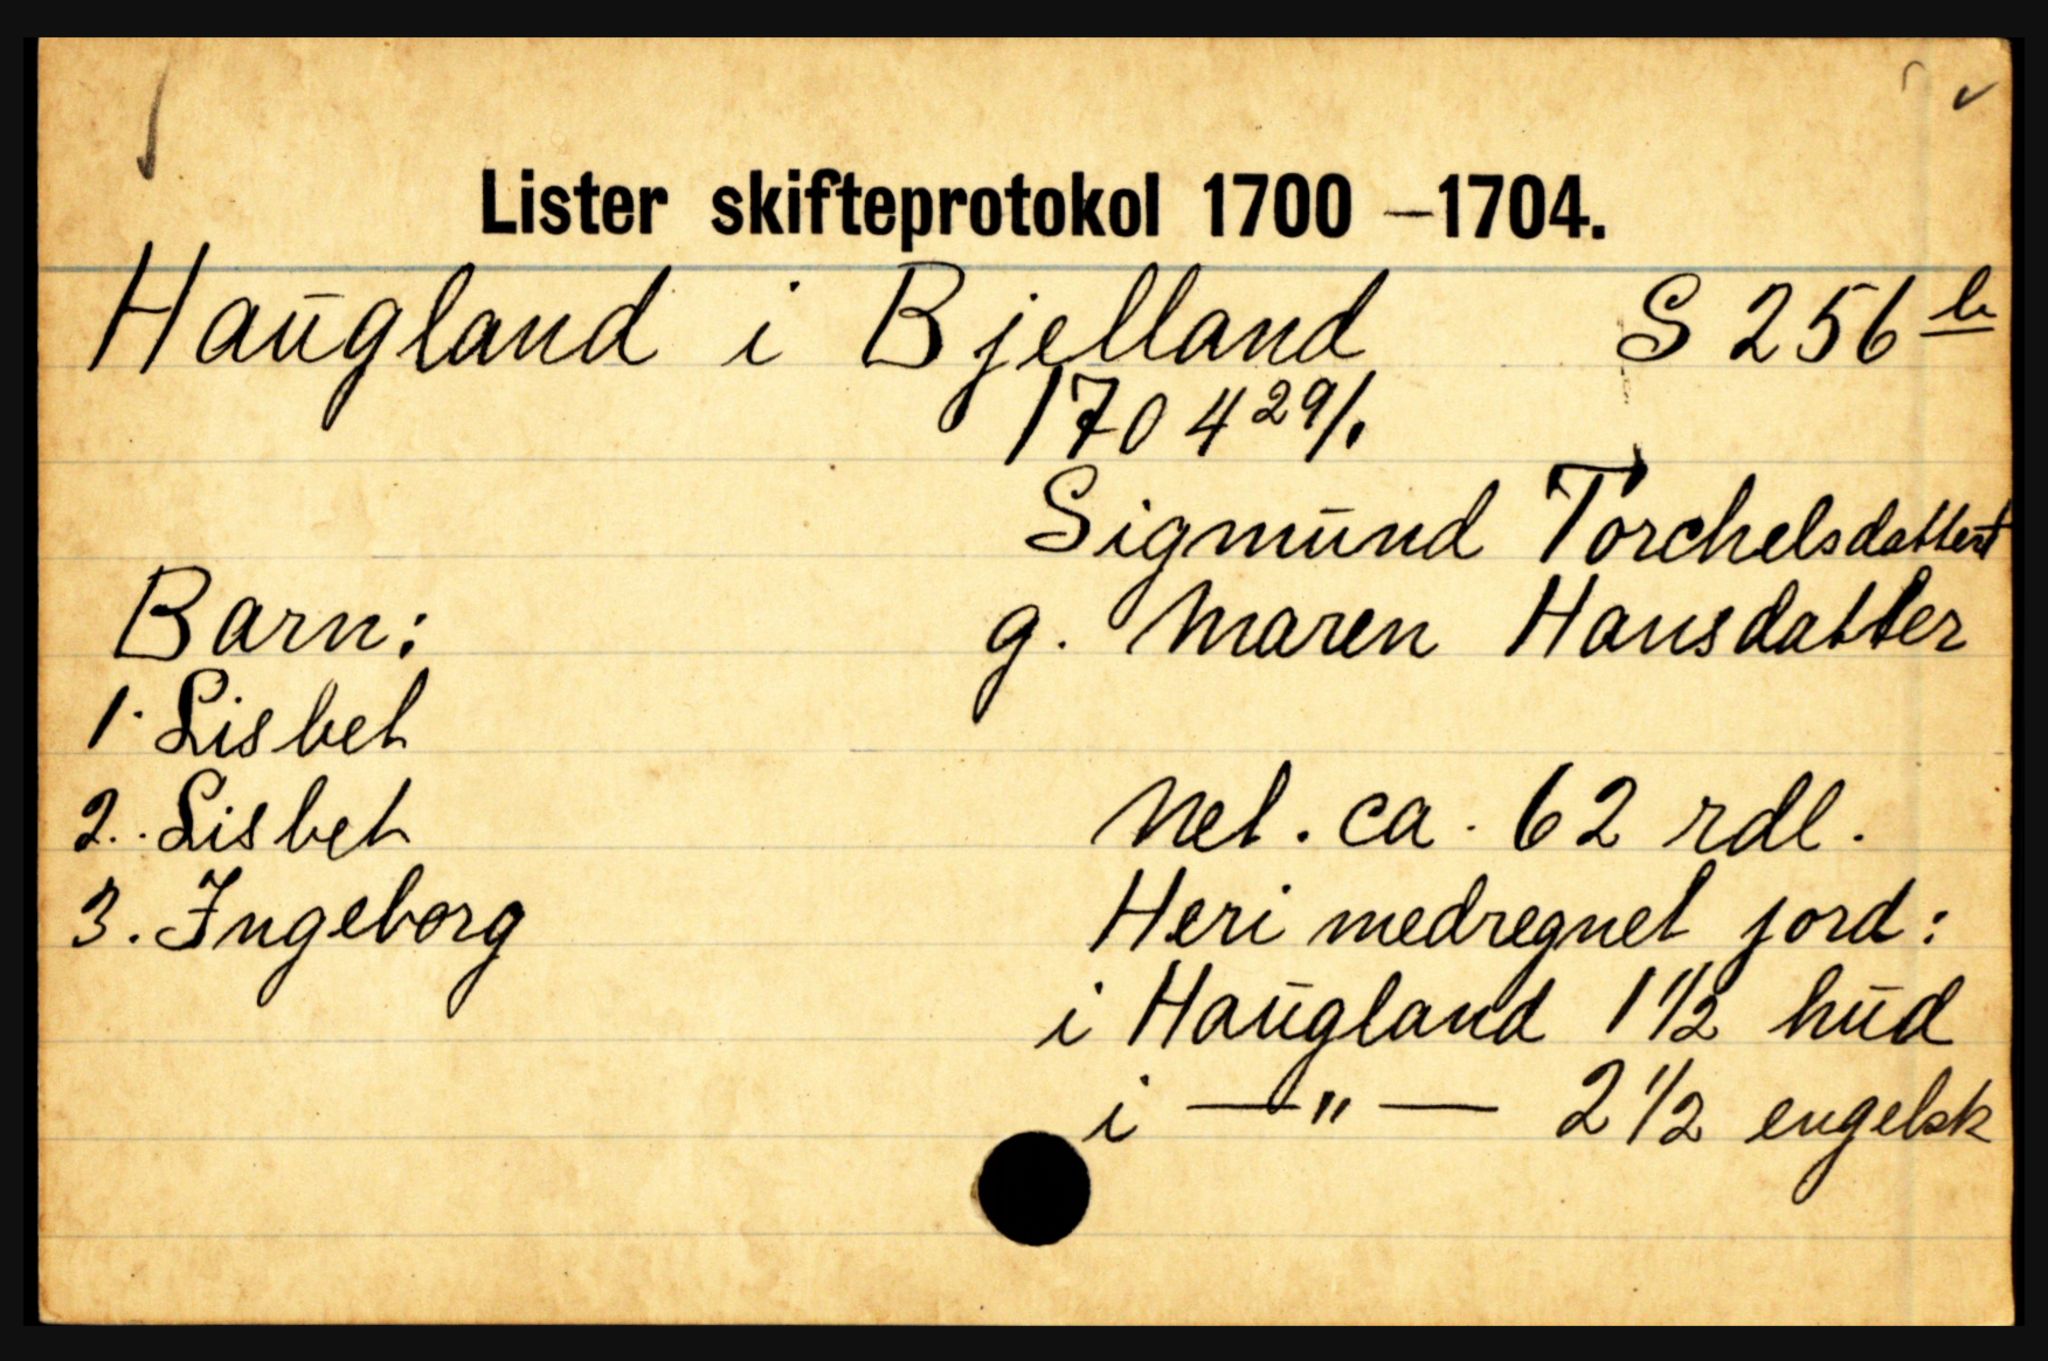 Lister skifteprotokol 1700 – 1704.
Haugland i Bjelland S 256 b
1704 29/1
Sigmund Torchelsdatter †
Barn: g. Maren Hansdatter
1. Lisbet
2. Lisbet Net. ca. 62 rdl.
3. Ingeborg Heri medregnet jord:
i Haugland 1 1/2 hud
i —"— 2 1/2 engelsk